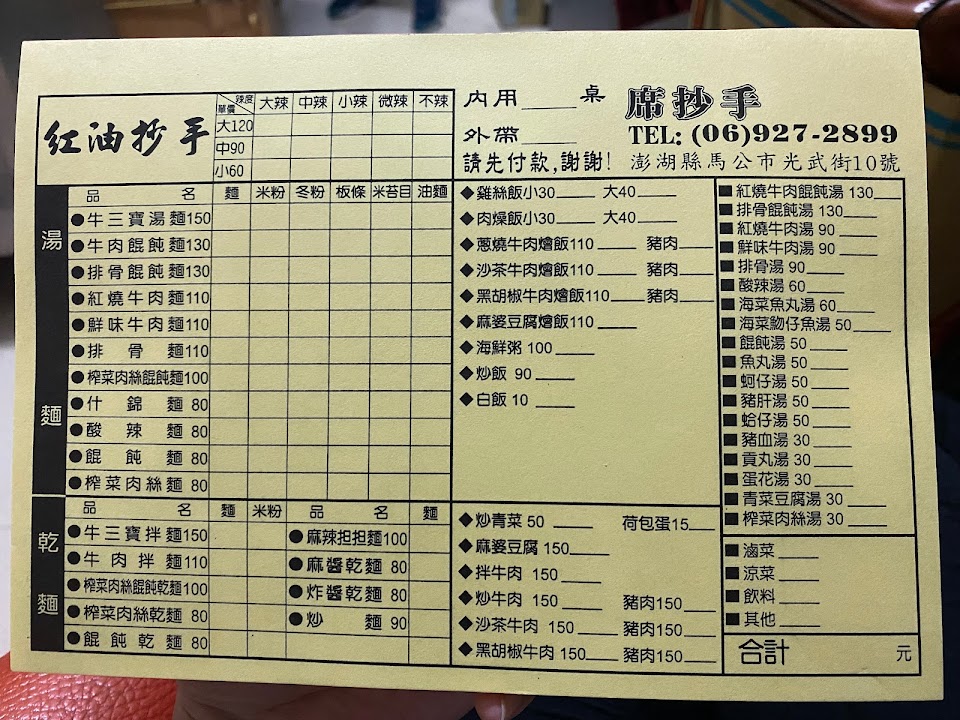 席抄手
TEL: (06)927-2899
澎湖縣馬公市光武街10號
內用____桌
外帶____
請先付款,謝謝!
紅油抄手
單價 辣度 大辣 中辣 小辣 微辣 不辣
大120
中90
小60
湯麵
品名 麵 米粉 冬粉 板條 米苔目 油麵
●牛三寶湯麵150
●牛肉餛飩麵130
●排骨餛飩麵130
●紅燒牛肉麵110
●鮮味牛肉麵110
●排骨麵110
●榨菜肉絲餛飩麵100
●什錦麵80
●酸辣麵80
●餛飩麵80
●榨菜肉絲麵80
乾麵
品名 麵 米粉
●牛三寶拌麵150
●牛肉拌麵110
●榨菜肉絲餛飩乾麵100
●榨菜肉絲乾麵80
●餛飩乾麵80
品名 麵
●麻辣担担麵100
●麻醬乾麵80
●炸醬乾麵80
●炒麵90
◆雞絲飯小30____ 大40____
◆肉燥飯小30____ 大40____
◆蔥燒牛肉燴飯110____ 豬肉____
◆沙茶牛肉燴飯110____ 豬肉____
◆黑胡椒牛肉燴飯110____ 豬肉____
◆麻婆豆腐燴飯110____
◆海鮮粥 100____
◆炒飯 90____
◆白飯 10____
◆炒青菜 50____ 荷包蛋15____
◆麻婆豆腐 150____
◆拌牛肉 150____
◆炒牛肉 150____ 豬肉150____
◆沙茶牛肉 150____ 豬肉150____
◆黑胡椒牛肉 150____ 豬肉150____
■紅燒牛肉餛飩湯 130____
■排骨餛飩湯 130____
■紅燒牛肉湯 90____
■鮮味牛肉湯 90____
■排骨湯 90____
■酸辣湯 60____
■海菜魚丸湯 60____
■海菜魩仔魚湯 50____
■餛飩湯 50____
■魚丸湯 50____
■蚵仔湯 50____
■豬肝湯 50____
■蛤仔湯 50____
■豬血湯 30____
■貢丸湯 30____
■蛋花湯 30____
■青菜豆腐湯 30____
■榨菜肉絲湯 30____
■滷菜____
■涼菜____
■飲料____
■其他____
合計 元